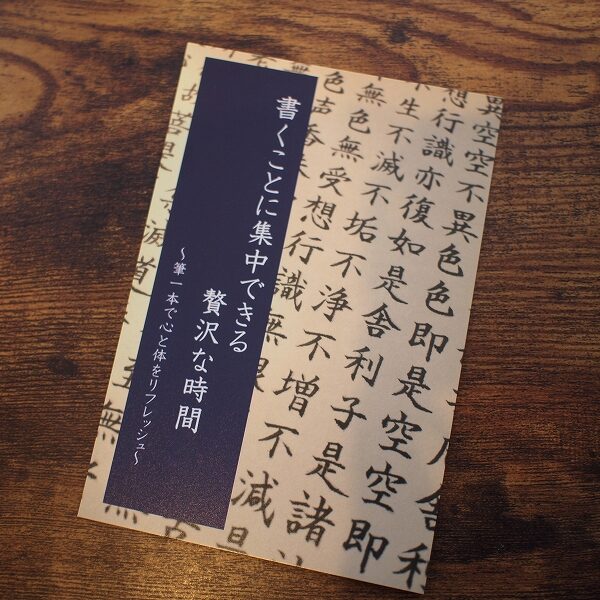 書くことに集中できる
贅沢な時間
～筆一本で心と体をリフレッシュ～
舎利
異空空不異色色即是空空即
想行識亦復如是舎利子是諸
生不滅不垢不浄不増不減是
無色無受想行識無眼
色声香